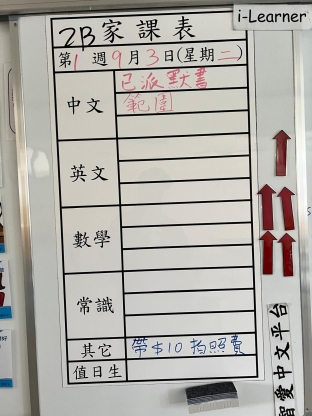 i-Learner
2B家課表
第1週9月3日(星期二)
中文
已派默書
範圍
英文
數學
常識
其它
帶$10拍照費
值日生
智愛中文平台